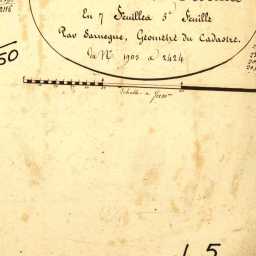 En 7 Feuilles 5e Feuille
Par Sarnegue, Géomètre du Cadastre.
du No 1905 à 2424
50
Echelle
1.5